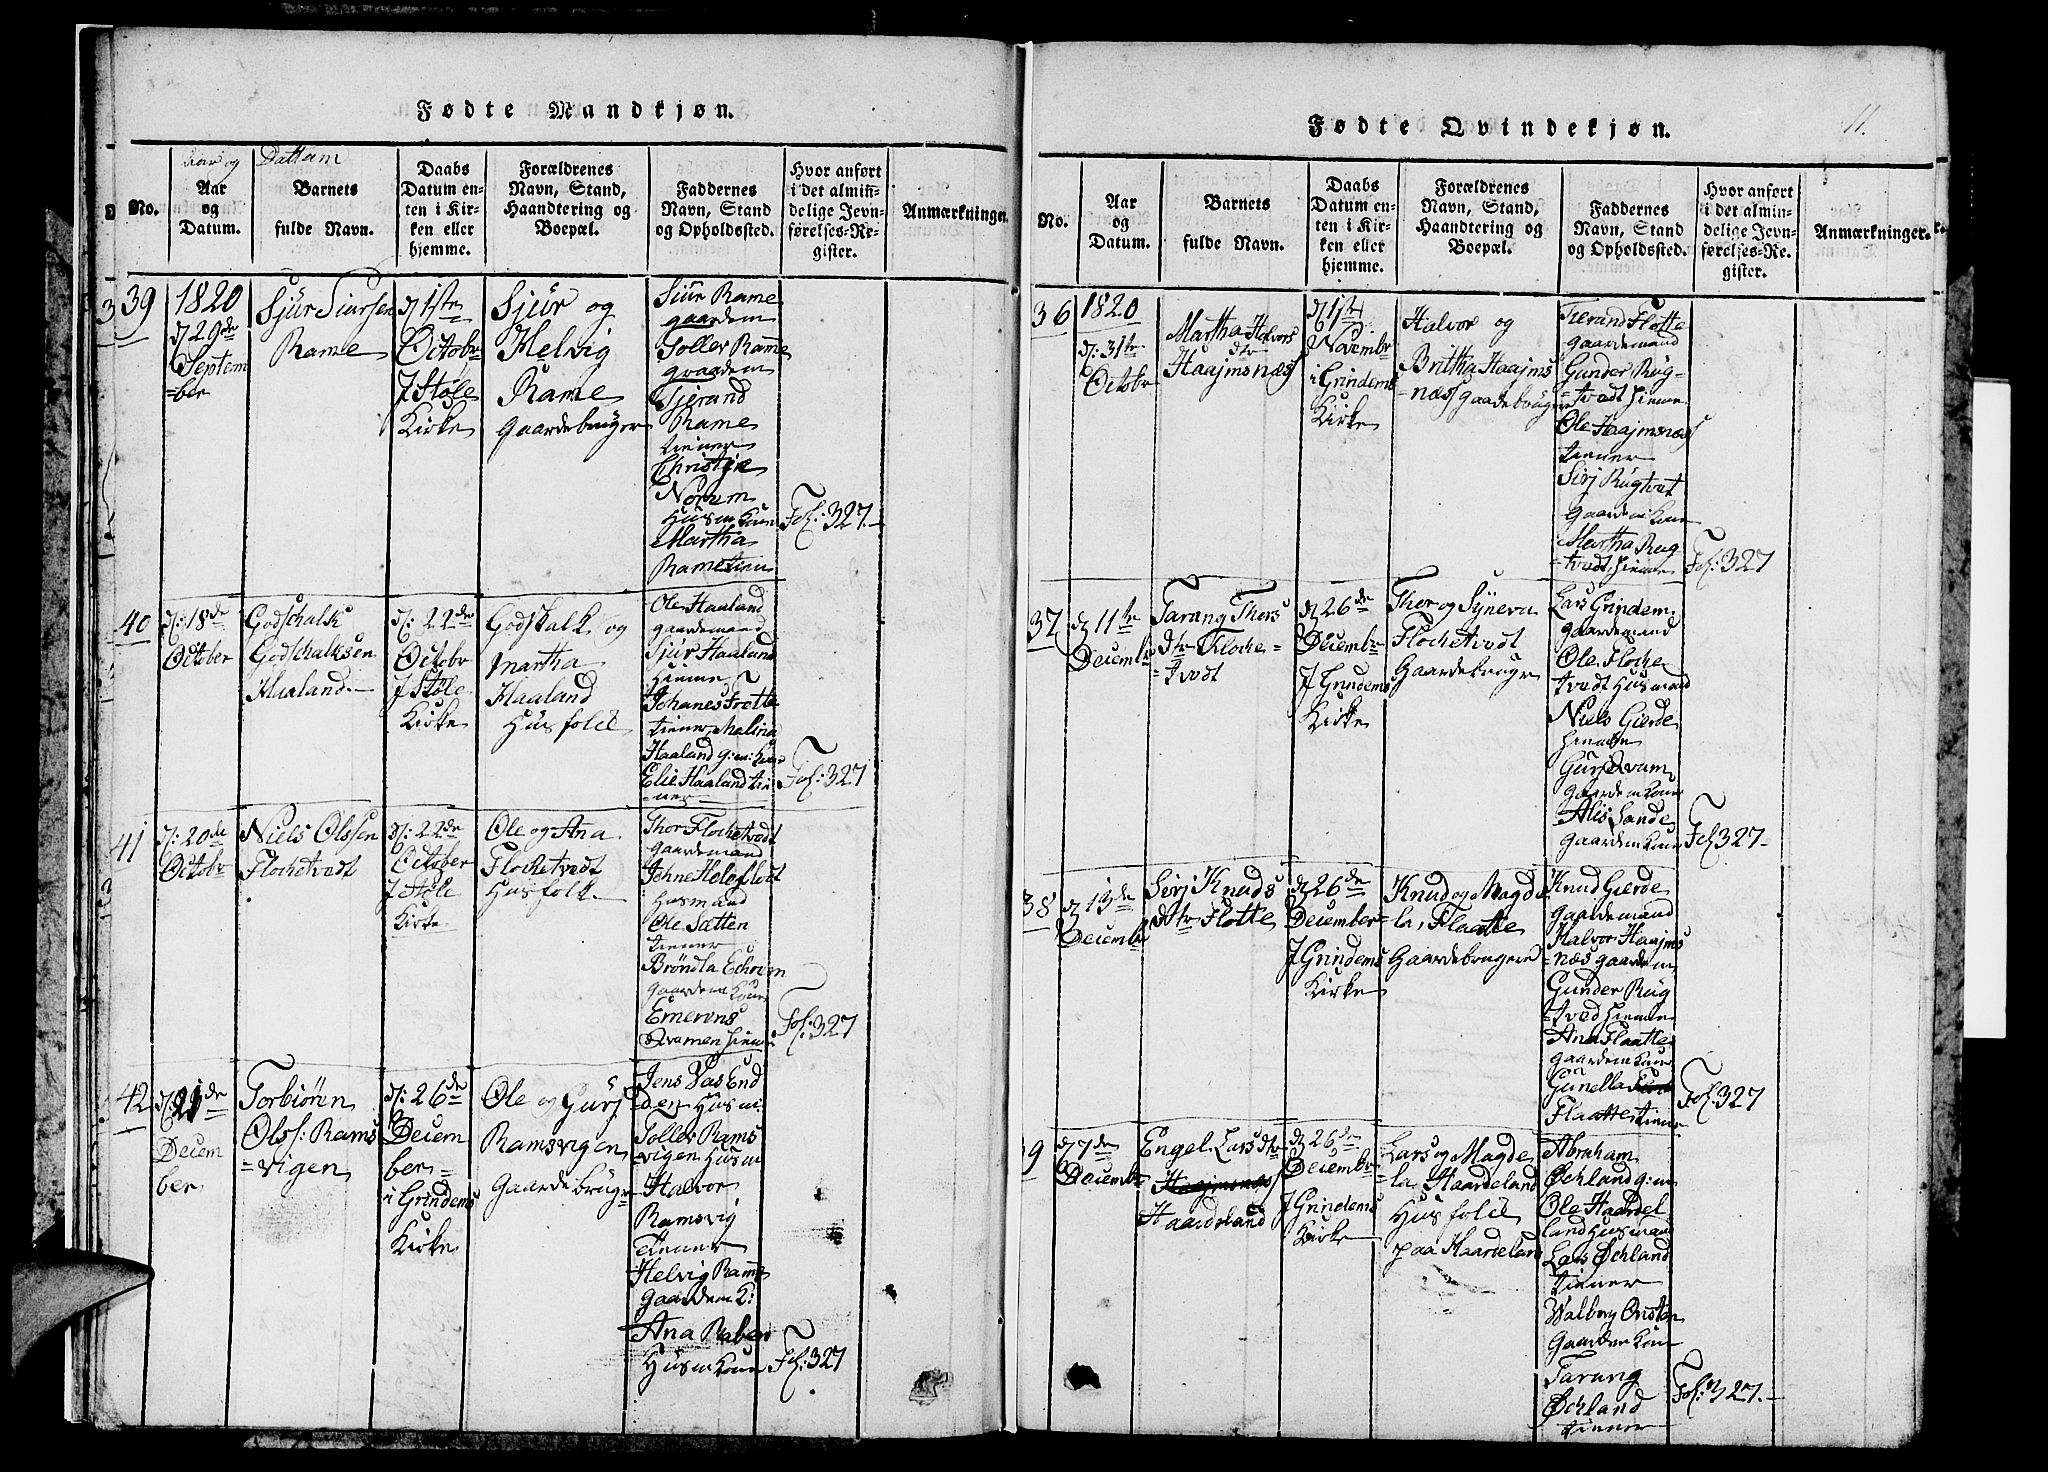 Fødte Mandkjøn.
No.
Aar
og
Datum.
Barnets
fulde Navn.
Daabs
Datum en-
ten i Kir-
ken eller
hjemme.
Forældrenes
Navn, Stand,
Haandtering og
Boepæl.
Faddernes
Navn, Stand
og Opholdssted.
Hvor anført
i det almin-
delige Jevn-
førelses-Re-
gister.
Anmærkninger.
39
1820
d 29de
Septem
=ber
Sjür Siursen
Rame
d 1ste
Octobr
J Støle
Kirke
Sjür og
Helvig
Rame
Gaardebruger
Siür Rame
gaardem
Toller Rame
gaardem
Tjerand
Rame
tiener
Christie
Norum
Husm Kone
Martha
Rame tien
Fol: 327.
40
d: 18de
October
Godschalk
Godschalksen
Haaland
d: 22de
Octobr
J Støle
Kirke
Godskalk og
Martha
Haaland
Husfolck
Ole Haaland
gaardemand
Sjur Haaland
hieme
Johanes Trette
tiener Malina
Haaland g:m: Kone
Elie Haaland tie
=ner
Fol: 327
41
d: 20de
Octobr
Niels Olssen
Flochetvedt
d: 22de
October
J Støle
Kirke
Ole og Ana
Flochetvedt
Husfolk
Thor Flochetvedt
gaardemand
Johne Helgflodt
Husmand
Ole Sætten
tiener
Brøndla Echrem
gaardem Kone
Emerens
Qvamen hieme
Fol: 327
42
d: 21de
Decem
ber
Torbiøren
Olss: Rams
=vigen
d: 26de
Decem
ber
i Grindems
Kirke
Ole og Gurj
Ramsvigen
Gaardebrugr
Jens Vas End
den Husm
Toller Rams
vigen Husm
Halvor
Ramsvig
tiener
Helvig Rame
gaardem K:
Ana Raben
Husm Kone
Fol: 327
Fødte Qvindekjøn.
11.
No.
Aar
og
Datum.
Barnets
fulde Navn.
Daabs
Datum en-
ten i Kir-
ken eller
hjemme.
Forældrenes
Navn, Stand,
Haandtering og
Boepæl.
Faddernes
Navn, Stand
og Opholdssted.
Hvor anført
i det almin-
delige Jevn-
førelses-Re-
gister.
Anmærkninger.
36
1820
d: 31te
Octobr
Martha Halvors
dtr
Haajmsnæs
d 1ste
Novembr
i Grindems
Kirke
Halvor og
Britha Haajms
=næs gaardebruger
Tierand Flotte
gaardemand
Gunder Rüg-
=tvedt hieme
Ole Haajmsnæs
tiener
Sirj Rügtvet
gaardem Kone
Martha Rug
=tvedt, hieme
Fol: 327
37
d 11te
Decembr
Tarang Thors
dtr Floche=
=tvedt
d 26de
Decembr
J Grindems
Kirke
Thor og Syneva
Flochetvedt
Gaardebrugr
Lars Grindem
gaardemand
Ole Floche
tvedt Husmand
Niels Gierde
hieme
Gurj Qvam
gaardem Kone
Alis Sande
gaardem Kone
Fol 327
38
d 13de
Decembr
Sirj Knuds
dtr Flotte
d 26de
December
J Grindems
Kirke
Knud og Magde
la, Flaatte
Gaardebrugere
Knud Gierde
gaardemand
Halvor Haajms
=næs gaardem
Gunder Rüg
=tved hieme
Ana Flaatte
gaardem Kone
Günella
Flaatte tiener
Fol: 327
39
d 7de
Decembr
Engel Lars dtr
Haajmsnæs
Haardeland
d 26de
Decembr
J Grindems
Kirke
Lars og Magde
la, Haardeland
Husfolck
paa Haardeland
Abraham
Øchland g:m
Ole Haardel
land Husmand
Lars Øchland
tiener
Walborg Ørsten
Gaardm Kone
Tarang
Øchland
tiener
Fol: 327.